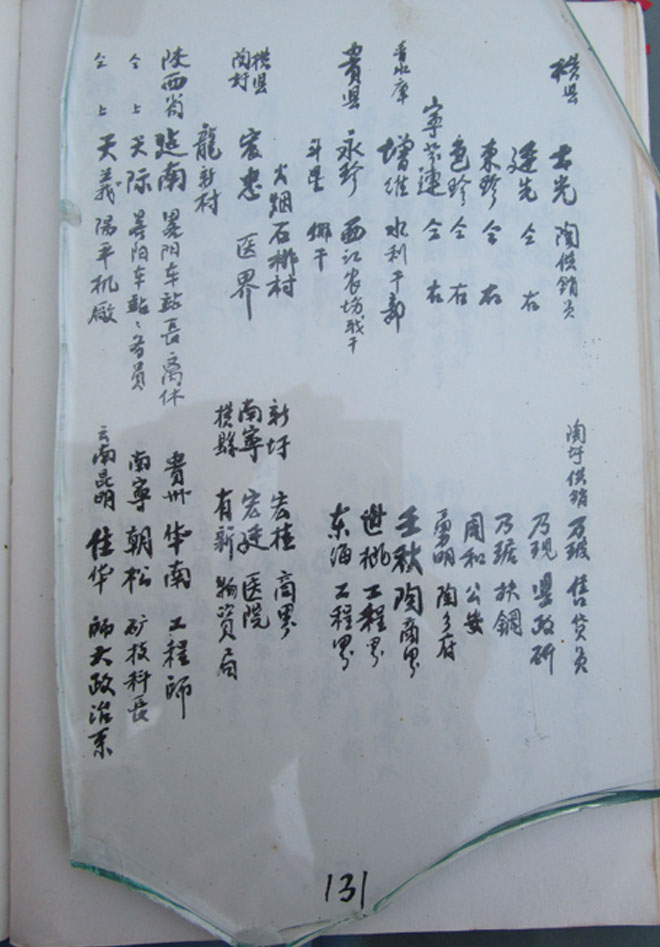 横县 光 陶供销员
逢先 仝右
东珍 仝右
色珍 仝右
宁 连 仝右
香水库 增维 水利干部
贵县 永珍 西江农场战干
斗星 干
火烟石榔村
横县
陶圩 宏忠 医界
龙新村
陕西省 延南 略阳车站长 离休
仝上 天际 车站
仝上 天义 阳平机厂
陶圩供销 乃 售货员
乃现 县政研
乃 扶钢
周和 公安
勇明 陶乡府
壬秋 陶商界
进桃 工程界
东海 工程界
新圩 宏桂 商界
南宁 宏廷 医院
横县 有新 物资局
贵州 华南 工程师
南宁 朝松 矿技科长
云南昆明 佳华 师大政治系
131